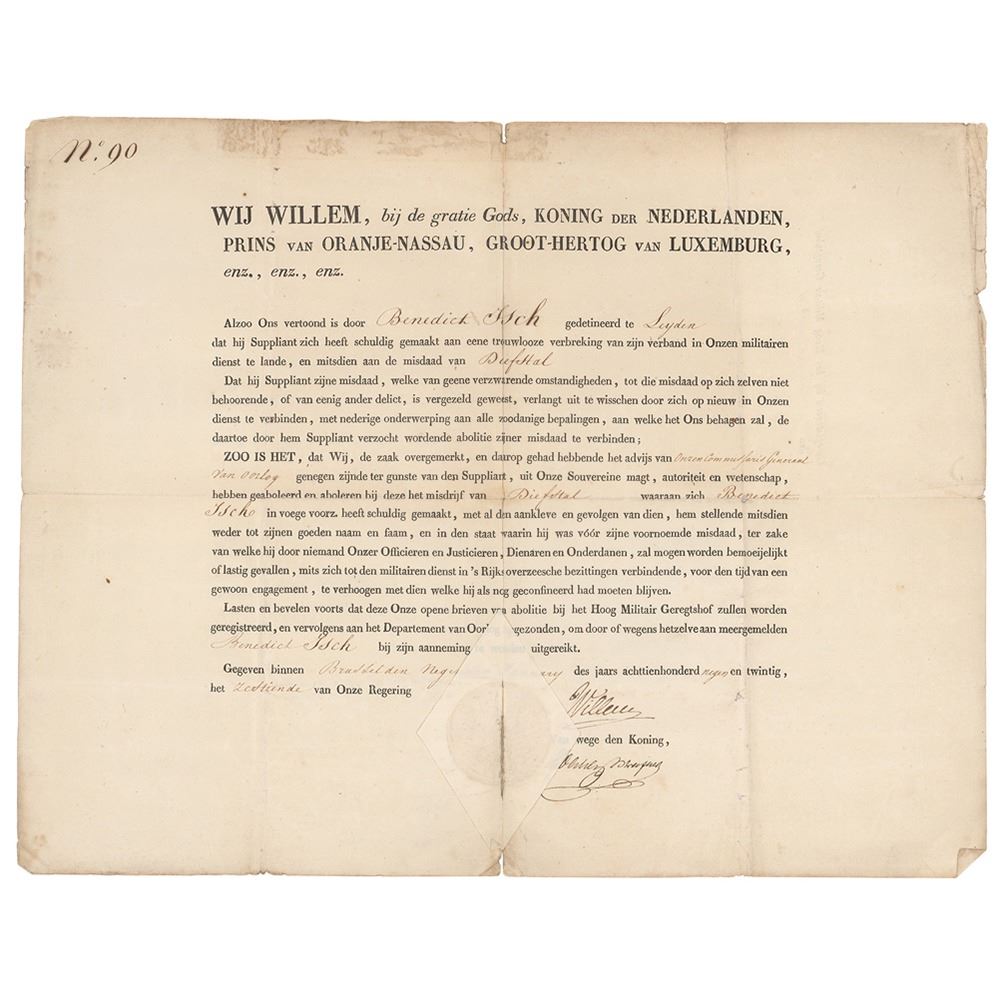 No. 90
WIJ WILLEM, bij de gratie Gods, KONING DER NEDERLANDEN,
PRINS VAN ORANJE-NASSAU, GROOT-HERTOG VAN LUXEMBURG,
enz., enz., enz.
Alzoo Ons vertoond is door Benedict Isch gedetineerd te Leyden
dat hij Suppliant zich heeft schuldig gemaakt aan eene trouwlooze verbreking van zijn verband in Onzen militairen
dienst te lande, en mitsdien aan de misdaad van Diefstal
Dat hij Suppliant zijne misdaad, welke van geene verzwarende omstandigheden, tot die misdaad op zich zelven niet
behoorende, of van eenig ander delict, is vergezeld geweest, verlangt uit te wisschen door zich op nieuw in Onzen
dienst te verbinden, met nederige onderwerping aan alle zoodanige bepalingen, aan welke het Ons behagen zal, de
daartoe door hem Suppliant verzocht wordende abolitie zijner misdaad te verbinden;
ZOO IS HET, dat Wij, de zaak overgemerkt, en daarop gehad hebbende het advijs van Onzen Commissaris Generaal
van Oorlog genegen zijnde ter gunste van den Suppliant, uit Onze Souvereine magt, autoriteit en wetenschap,
hebben geaboleerd en aboleren bij deze het misdrijf van Diefstal waaraan zich Benedict
Isch in voege voorz. heeft schuldig gemaakt, met al den aankleve en gevolgen van dien, hem stellende mitsdien
weder tot zijnen goeden naam en faam, en in den staat waarin hij was vóór zijne voornoemde misdaad, ter zake
van welke hij door niemand Onzer Officieren en Justicieren, Dienaren en Onderdanen, zal mogen worden bemoeijelijkt
of lastig gevallen, mits zich tot den militairen dienst in 's Rijks overzeesche bezittingen verbindende, voor den tijd van een
gewoon engagement, te verhoogen met dien welke hij als nog geconfineerd had moeten blijven.
Lasten en bevelen voorts dat deze Onze opene brieven van abolitie bij het Hoog Militair Geregtshof zullen worden
geregistreerd, en vervolgens aan het Departement van Oorlog toegezonden, om door of wegens hetzelve aan meergemelden
Benedict Isch bij zijn aanneming te worden uitgereikt.
Gegeven binnen Brussel den des jaars achttienhonderd negen en twintig,
het Zestiende van Onze Regering
Willem
Van wege den Koning,